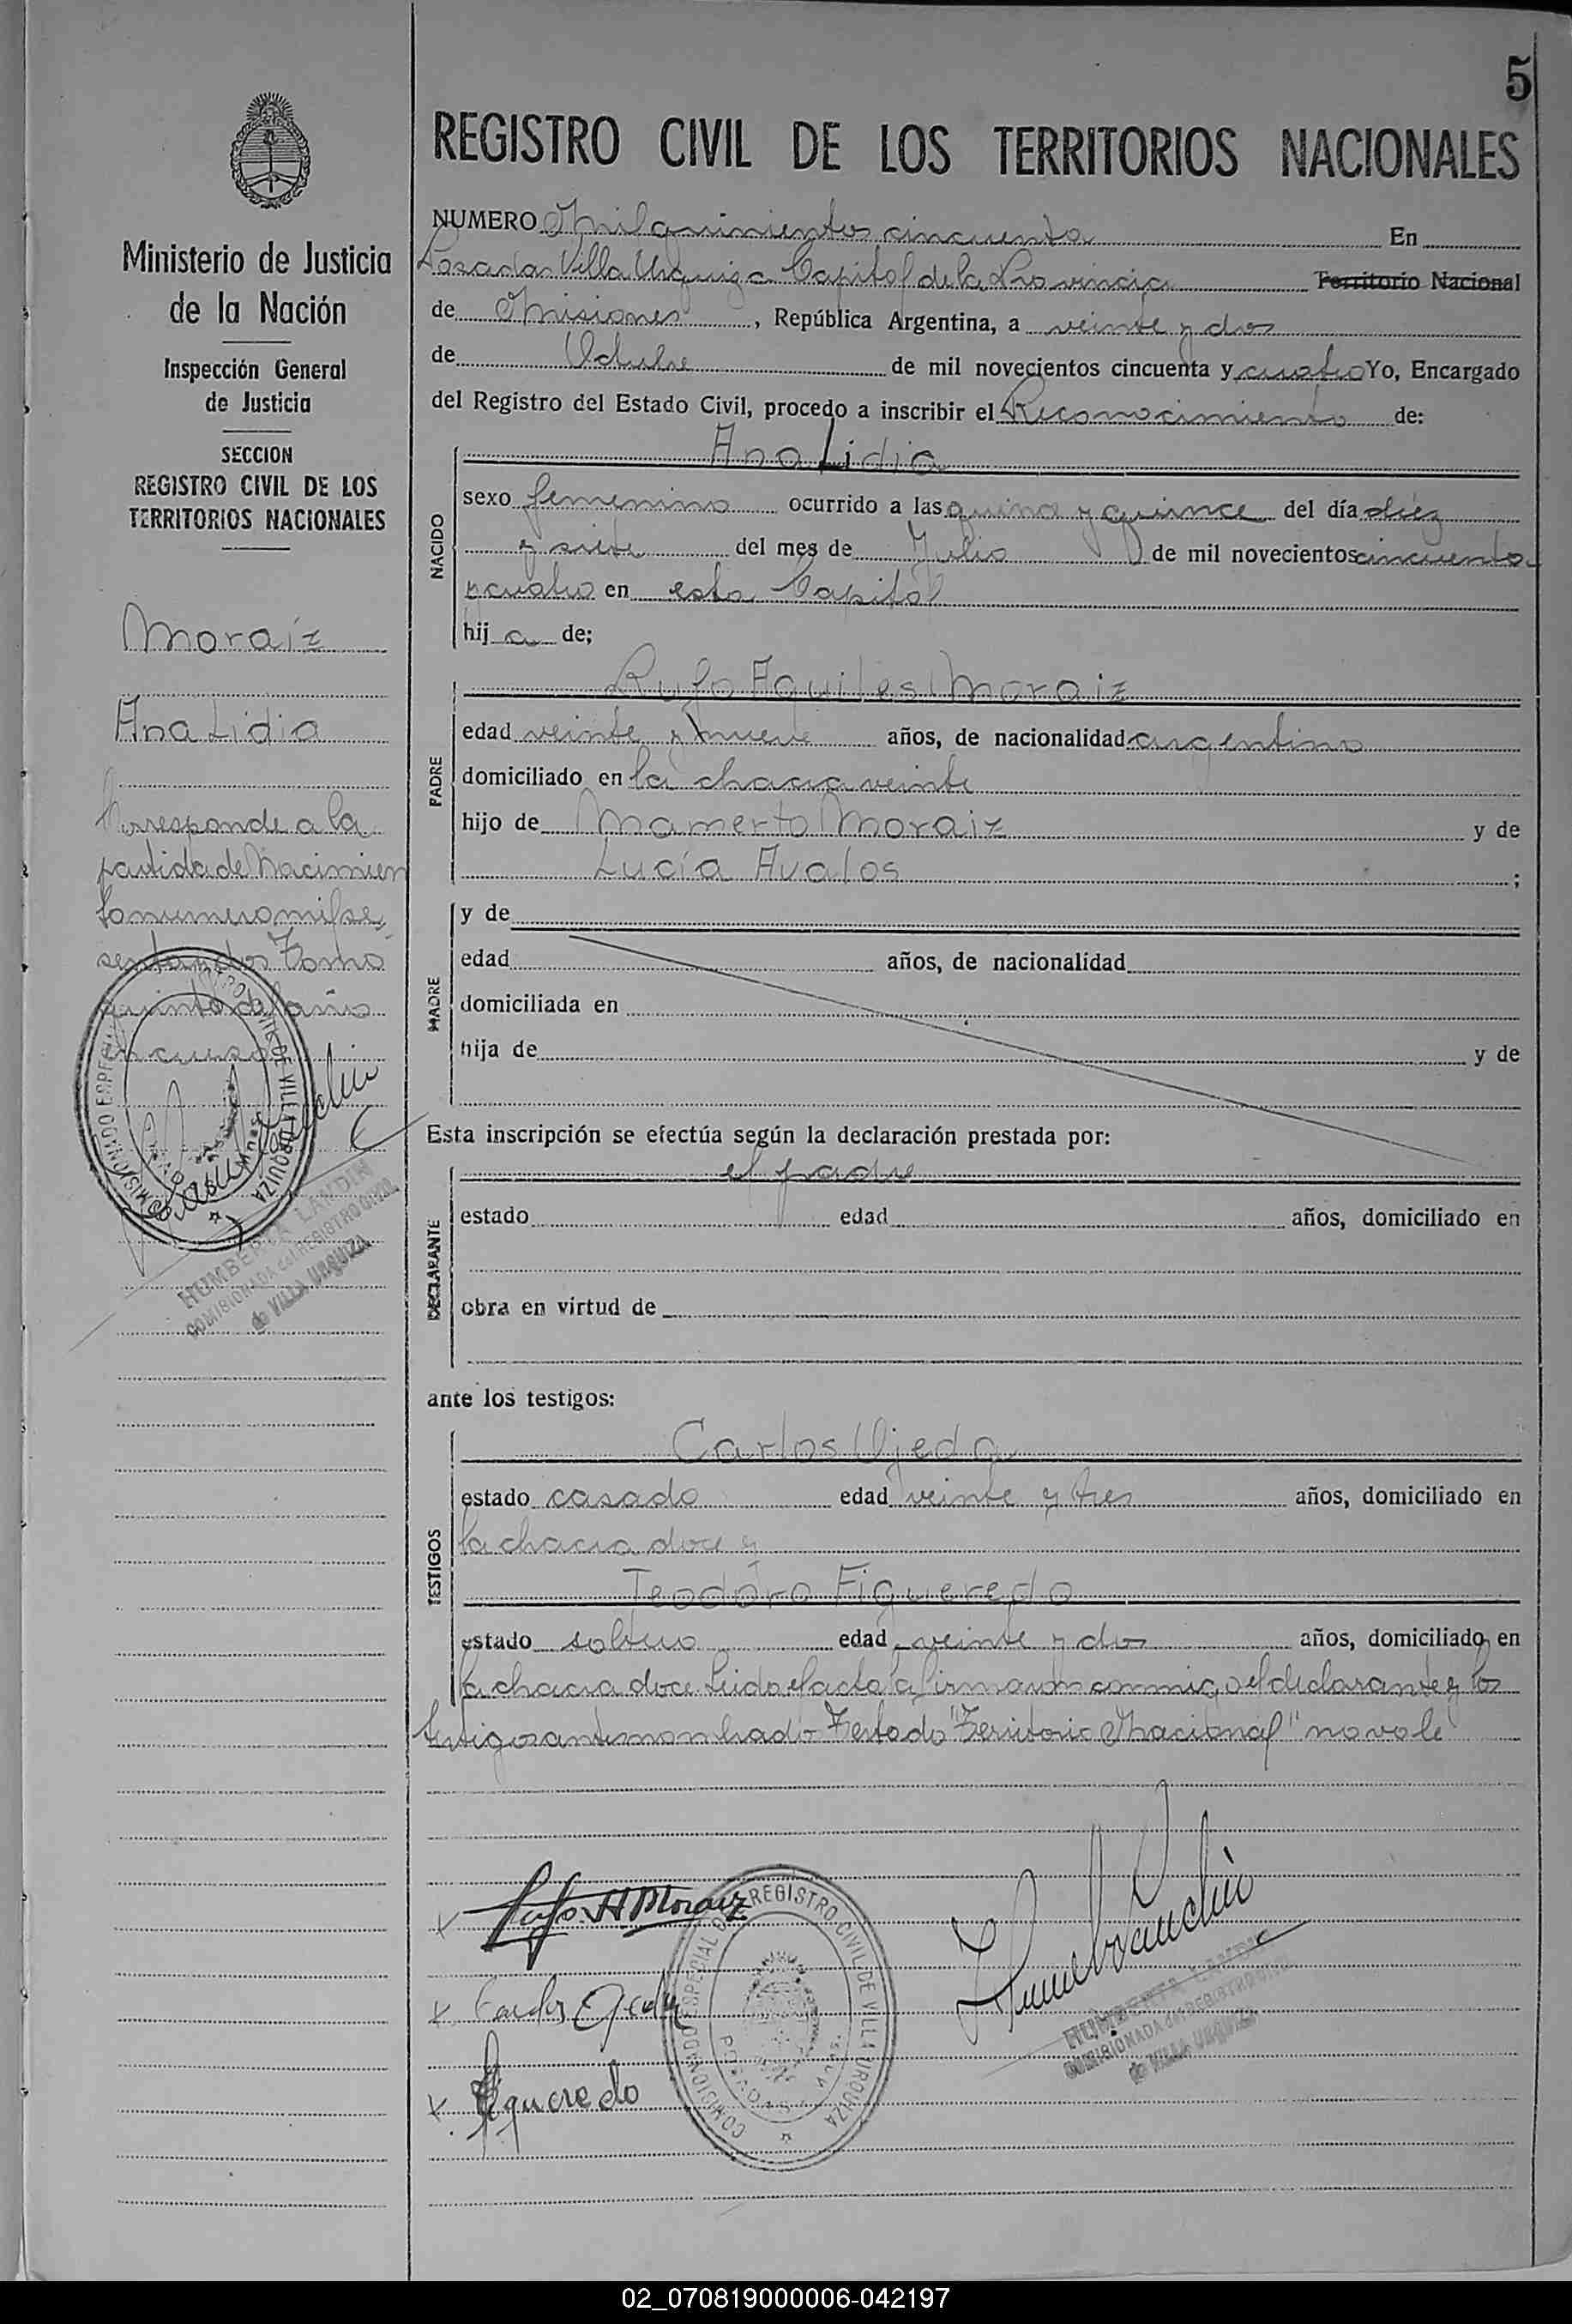 5
REGISTRO CIVIL DE LOS TERRITORIOS NACIONALES
Ministerio de Justicia
de la Nación
Inspección General
de Justicia
SECCION
REGISTRO CIVIL DE LOS
TERRITORIOS NACIONALES
Moraiz
Ana Lidia
Corresponde a la
partida de Nacimien
to numero mil se
senta y dos Tomo
quinto del año
en curso
COMISIONADO ESPECIAL DEL REGISTRO CIVIL DE VILLA URQUIZA
HUMBERTA LANDIN
COMISIONADA del REGISTRO CIVIL
de VILLA URQUIZA
NUMERO Mil quinientos cincuenta En
Posadas Villa Urquiza Capital de la Provincia Territorio Nacional
de Misiones, República Argentina, a veinte y dos
de Octubre de mil novecientos cincuenta y cuatro Yo, Encargado
del Registro del Estado Civil, procedo a inscribir el Reconocimiento de:
NACIDO
Ana Lidia
sexo femenino ocurrido a las y quince del día diez
y siete del mes de Julio de mil novecientos cincuenta
y cuatro en esta Capital
hija de;
PADRE
Rufo Aquiles Moraiz
edad veinte y nueve años, de nacionalidad argentino
domiciliado en la chacra veinte
hijo de Mamerto Moraiz y de
Lucía Avalos ;
MADRE
y de
edad años, de nacionalidad
domiciliada en
hija de y de
Esta inscripción se efectúa según la declaración prestada por:
DECLARANTE
el padre
estado edad años, domiciliado en
obra en virtud de
ante los testigos:
TESTIGOS
Carlos Ojeda
estado casado edad veinte y tres años, domiciliado en
la chacra doce y
Teodoro Figueredo
estado soltero edad veinte y dos años, domiciliado en
la chacra doce Leida el acta la firmaron conmigo el declarante y los
testigos antes nombrado Testado "Territorio Nacional" no vale
Rufo A Moraiz
Carlos Ojeda
Figueredo
COMISIONADO ESPECIAL DEL REGISTRO CIVIL DE VILLA URQUIZA
POSADAS
HUMBERTA LANDIN
COMISIONADA del REGISTRO CIVIL
de VILLA URQUIZA
02_070819000006-042197